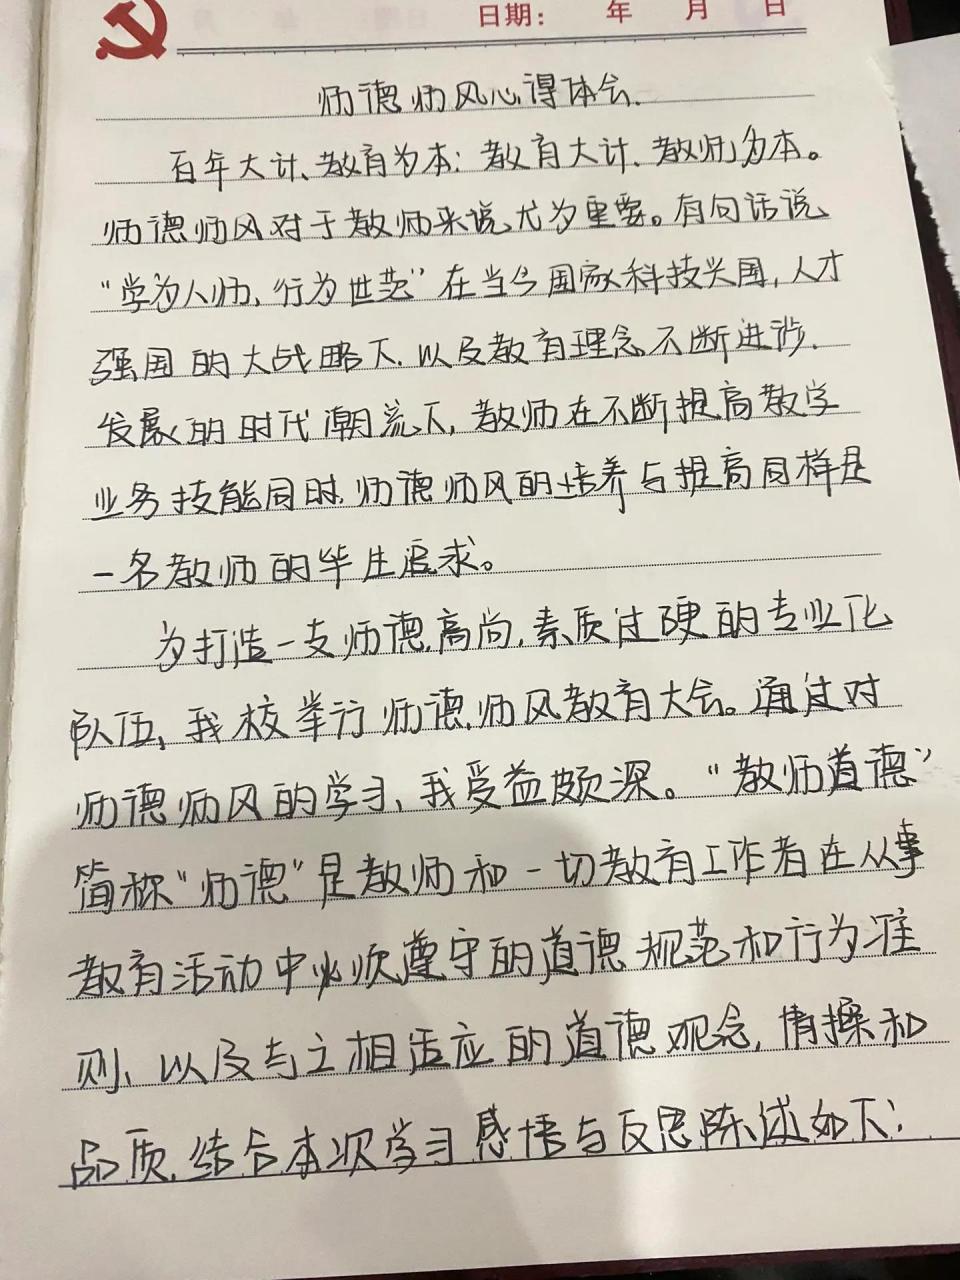 日期： 年 月 日
师德师风心得体会.
百年大计、教育为本：教育大计、教师为本。
师德师风对于教师来说尤为重要。有句话说
“学为人师，行为世范”在当今国家科技兴国，人才
强国的大战略下，以及教育理念不断进涉、
发展的时代潮流下，教师在不断提高教学
业务技能同时，师德师风的培养与提高同样是
一名教师的毕生追求。
为打造一支师德高尚，素质过硬的专业化
队伍，我校举行师德师风教育大会。通过对
师德师风的学习、我受益颇深。“教师道德”
简称“师德”是教师和一切教育工作者在从事
教育活动中必须遵守的道德规范和行为准
则、以及与之相适应的道德观念，情操和
品质，结合本次学习感悟与反思陈述如下：